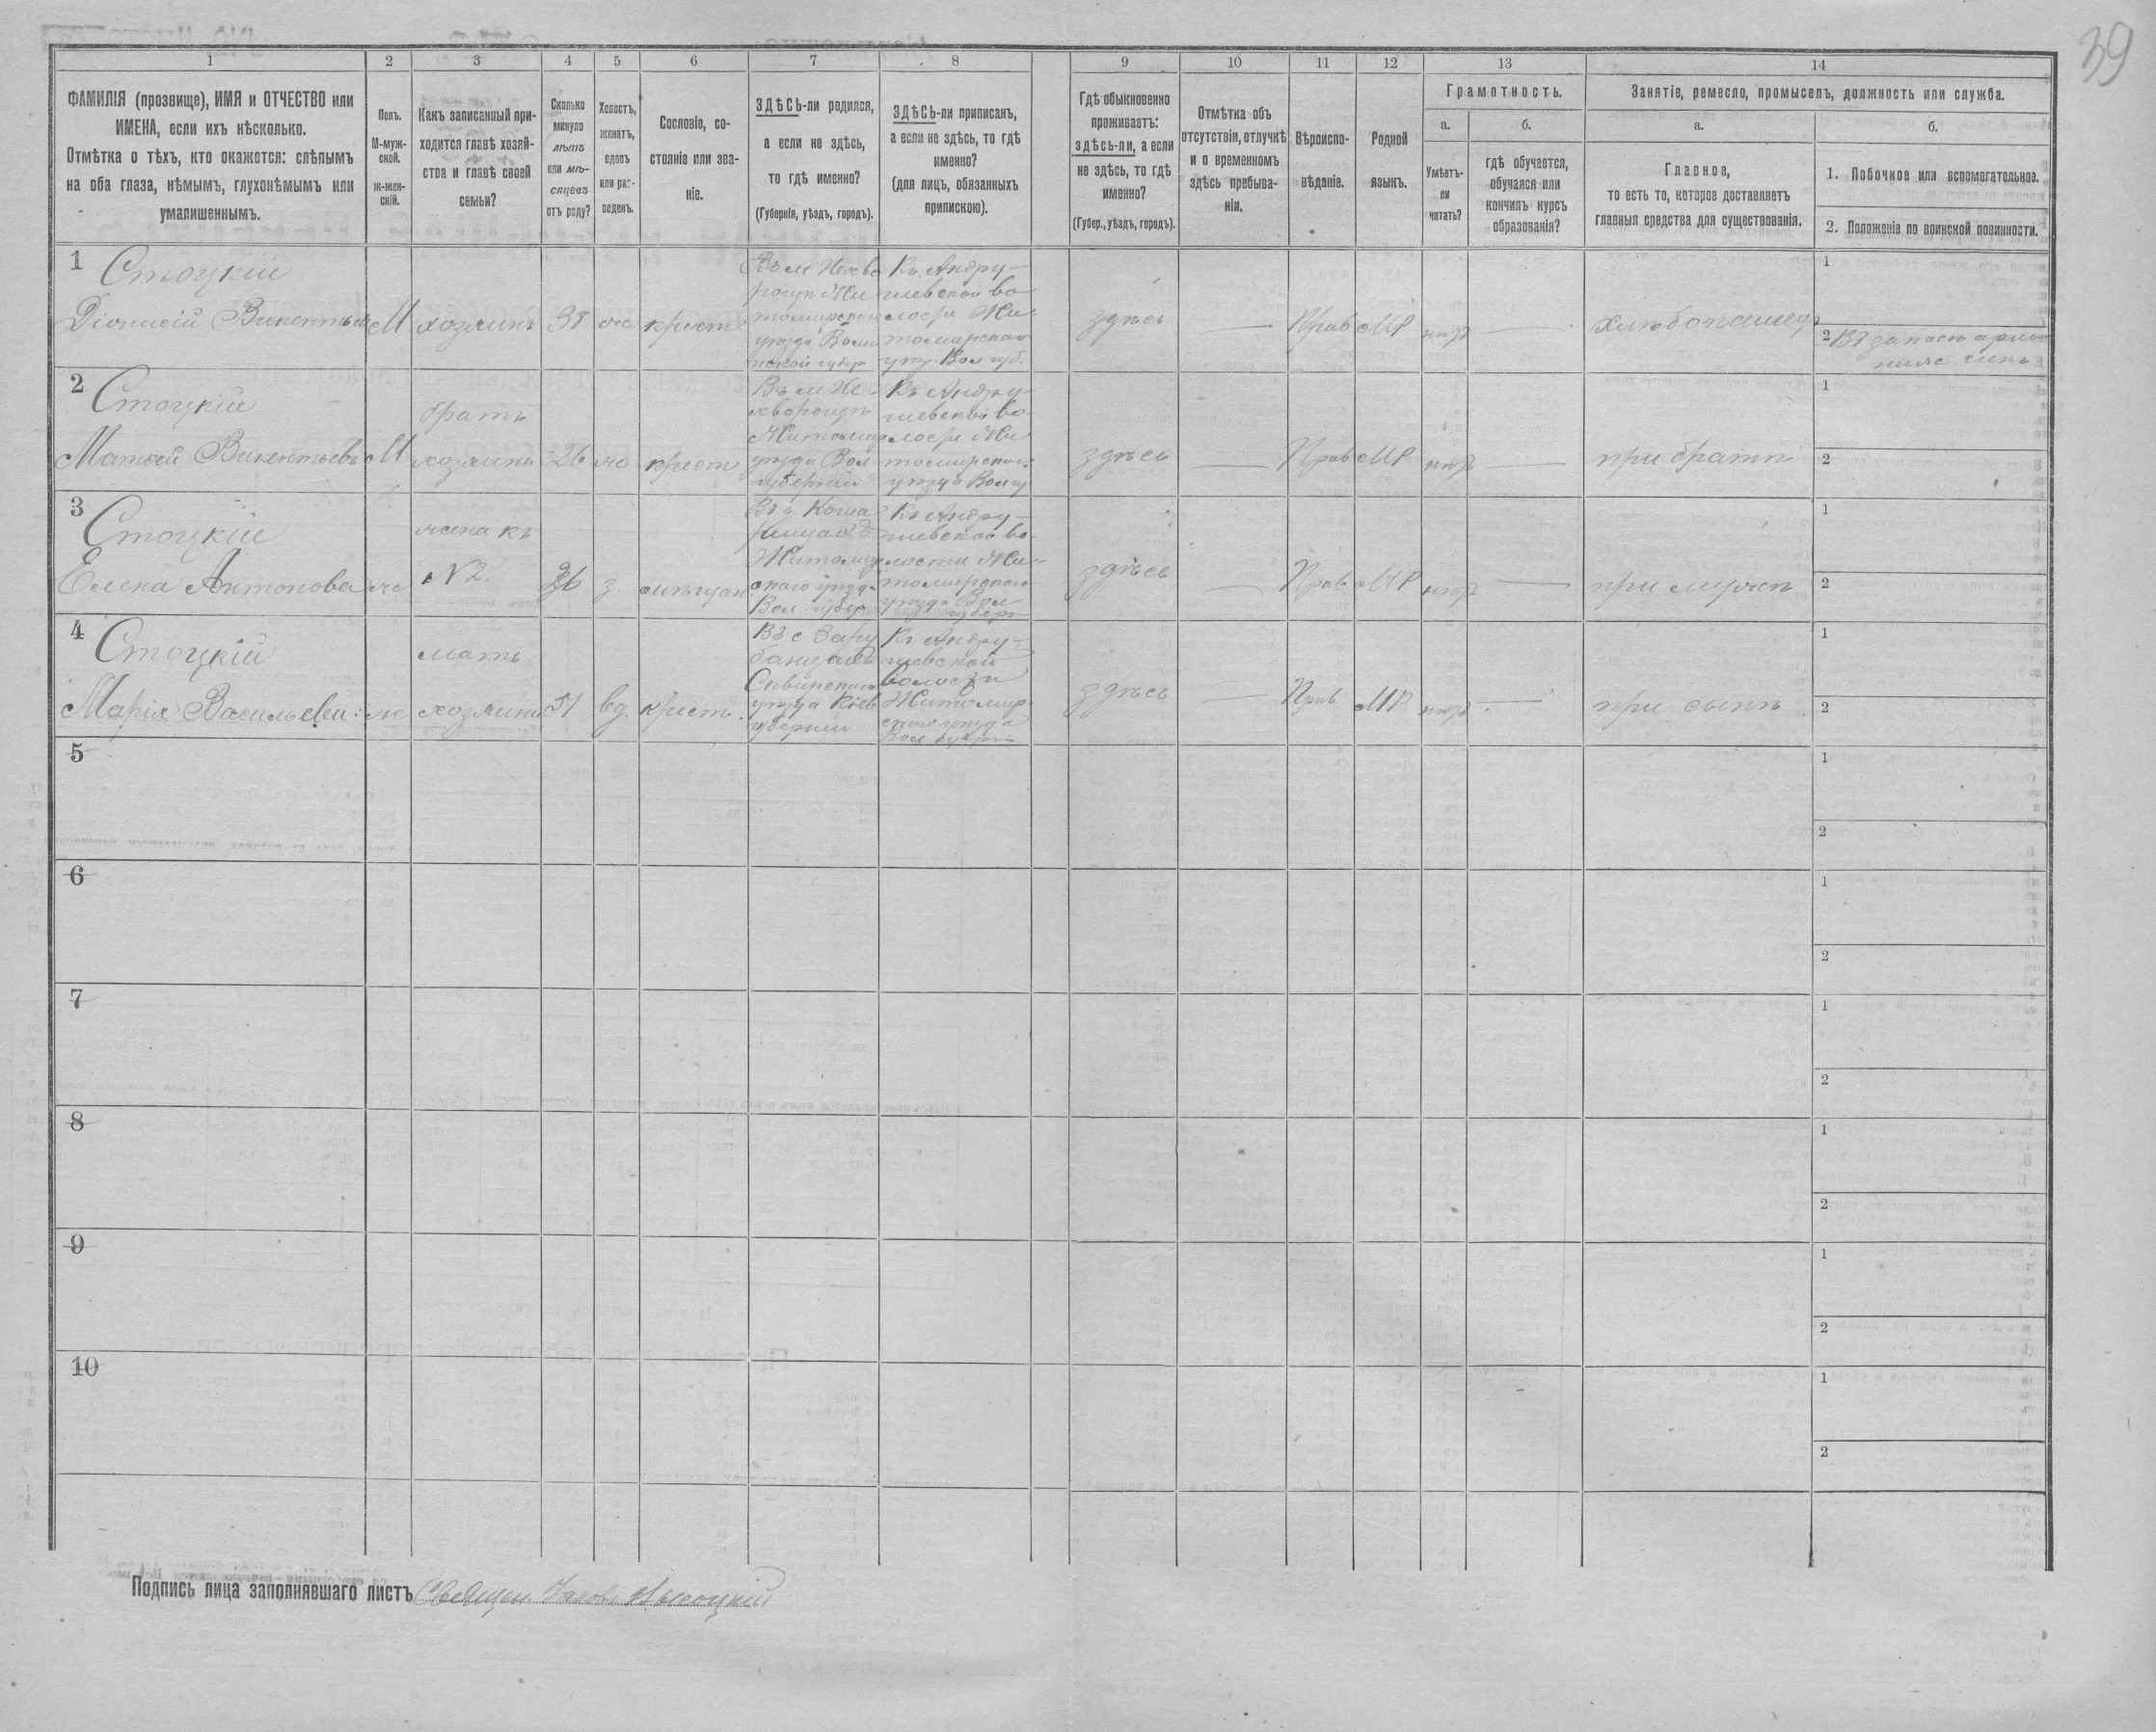 39
1 2 3 4 5 6 7 8 9 10 11 12 13 14
ФАМИЛІЯ (прозвище), ИМЯ и ОТЧЕСТВО или
ИМЕНА, если ихъ нѣсколько.
Отмѣтка о тѣхъ, кто окажется: слѣпымъ
на оба глаза, нѣмымъ, глухонѣмымъ или
умалишеннымъ.
Полъ.
М-муж-
ской.
ж-жен-
скій.
Какъ записанный при-
ходится главѣ хозяй-
ства и главѣ своей
семьи?
Сколько
минуло
лѣтъ
или мѣ-
сяцевъ
отъ роду?
Холостъ,
женатъ,
вдовъ
или раз-
веденъ.
Сословіе, со-
стояніе или зва-
ніе.
ЗДѢСЬ-ли родился,
а если не здѣсь,
то гдѣ именно?
(Губернія, уѣздъ, городъ).
ЗДѢСЬ-ли приписанъ,
а если не здѣсь, то гдѣ
именно?
(для лицъ, обязанныхъ
припискою).
Гдѣ обыкновенно
проживаетъ:
здѣсь-ли, а если
не здѣсь, то гдѣ
именно?
(Губер., уѣздъ, городъ).
Отмѣтка объ
отсутствіи, отлучкѣ
и о временномъ
здѣсь пребыва-
ніи.
Вѣроиспо-
вѣданіе.
Родной
языкъ.
Грамотность.
а.
Умѣетъ-
ли
читать?
б.
гдѣ обучается,
обучался или
кончилъ курсъ
образованія?
Занятіе, ремесло, промыселъ, должность или служба.
а.
Главное,
то есть то, которое доставляетъ
главныя средства для существованія.
б.
1. Побочное или вспомогательное.
2. Положеніе по воинской повинности.
1
Стоцкій
Діонисій Викентьев
М
хозяинъ
38
же
крест
Житомирскаго
уѣзда
Къ Андру-
шевской во
лости Жи-
томирскаго
Вол губ.
здѣсь
—
Прав
МР
нѣтъ
—
хлѣбопашец
1
2 Въ запасѣ арміи
чинъ
2
Стоцкій
Матвей Викентьевъ
М
братъ
хозяина
26
же
крест
Житомир
уѣзда Вол
губерніи
Къ Андру-
шевской во-
лости Жи
томирскаго
уѣзда Вол гу
здѣсь
—
Прав
МР
нѣтъ
—
при братѣ
1
2
3
Стоцкій
Елена Антонова
же
жена къ
№2.
26
з.
мѣщан
Житомир
скаго уѣзда
Вол. губер
Къ Андру-
шевской во-
лости Жи-
томирскаго
уѣзда Вол
губер
здѣсь
—
Прав
МР
нѣтъ
—
при мужѣ
1
2
4
Стоцкій
Марія Васильеви:
же
мать
хозяина
51
вд.
крест.
Въ с Зару
банцахъ
Сквирскаго
уѣзда Кіев
губерніи
Къ Андру-
шевской
волости
Житомир
скаго уѣзда
Вол губер
здѣсь
—
Прав
МР
нѣтъ
—
при сынѣ
1
2
5
1
2
6
1
2
7
1
2
8
1
2
9
1
2
10
1
2
Подпись лица заполнявшаго листъ Священ. Яковъ Высоцкій